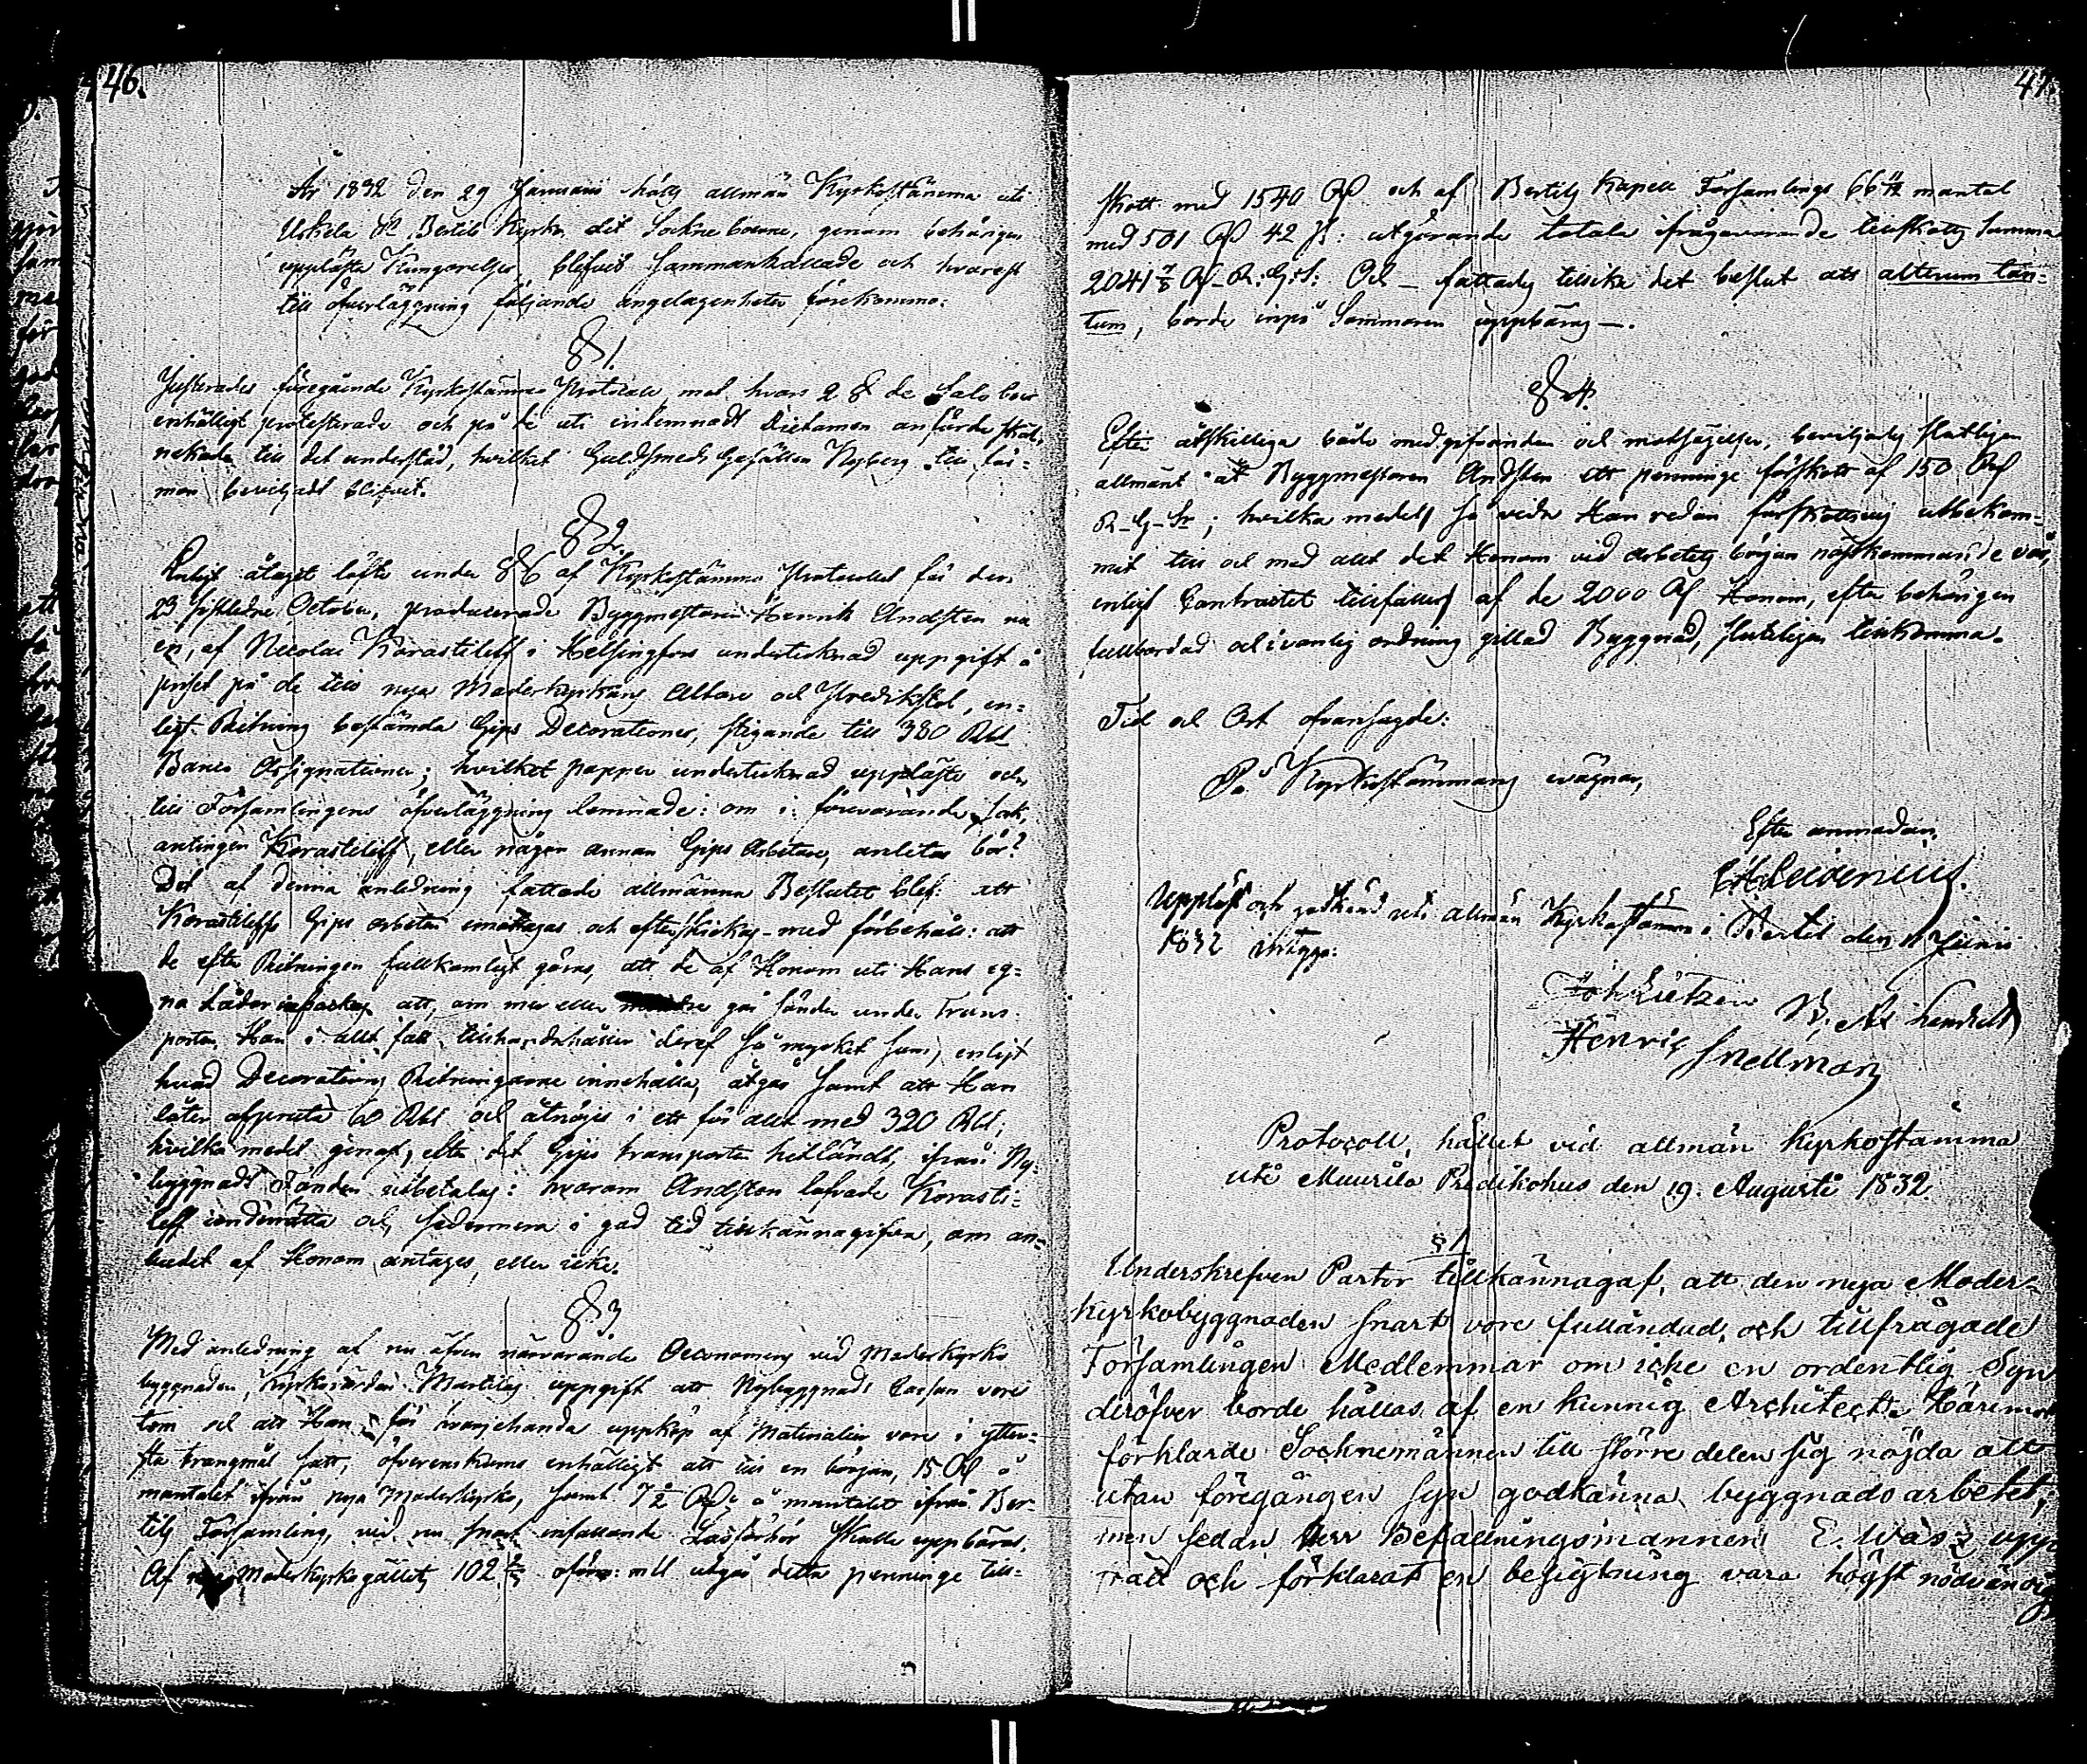 46.
År 1832 den 29 Januarii hölls allmän Kyrkostämma uti
Uskela St Bertils Kyrka, dit Sockneboerne, genom behörigen
uppläste Kungörelser, blifvit sammankallade och hvarest
till öfverläggning följande angelägenheter förekommo:
§ 1.
Justerades föregående Kyrkostämmo Protocoll, mot hvars 2 § de Salo boer
enhälligt protesterade och på de uti inlemnadt Dictamen anförde skäl,
nekade till det understöd, hvilket Guldsmeds Gesällen Nyberg till för-
mon beviljadt blifvit.
§ 2.
Enligt åtagit löfte under § 6 af Kyrkostämmo Protocollet för den
23 sistledne October, producerade Byggmästaren Henrik Andsten nu
en, af Nicolai Korastileff i Helsingfors undertecknad uppgift å
priset på de till nya Moderkyrkans Altare och Predikstol, en-
ligt Ritning bestämda Gips Decorationer, stigande till 380 Rbl
Banco Assignationer; hvilket papper undertecknad uppläste och
till Församlingens öfverläggning lemnade: om i förevarande sak,
antingen Korastileff, eller någon annan Gips Arbetare, anlitas bör?
Det af denna anledning fattade allmänna Beslutet blef: att
Korastileffs Gips arbeten emottagas och efterskickas med förbehåll: att
de efter Ritningen fullkomligt göras, att de af Honom uti Hans eg-
na Lådor inpackas att, om mer eller mindre går sönder under Trans-
porten, Han i allt fall tillhandahåller deraf så mycket som, enligt
hvad Decorations Ritningarne innehålla, åtgår samt att Han
låter afpruta 60 Rbl och åtnöjes i ett för allt med 320 Rbl;
hvilka medel genast, efter det Gips transporten hitländt, ifrån Ny-
byggnads Fonden utbetalas: hvarom Andsten lofvade Korasti-
leff underrätta och sedermera i god tid tillkännagifva, om an-
budet af Honom antages, eller icke.
§ 3.
Med anledning af nu äfven närvarande Oeconomens vid Moderkyrko
byggnaden, Kyrkovärden Martelins uppgift att Nybyggnads Cassan vore
tom och att Han för hvarjehanda uppköp af Materialier vore i ytter-
sta trångmål satt, öfverenskoms enhälligt att till en början, 15 Rbl å
mantalet ifrån nya Moderkyrko, samt 7½ Rbl å mantalet ifrån Ber-
tils Församling, vid nu snart infallande Läsförhör skulle uppbäras.
Af Moderkyrko gällets 102 2/3 mtl utgår detta penninge till-
47.
skott med 1540 Rbl och af Bertils Kapell Församlings 66 mantal
med 501 Rbl 42 k: utgörande totala ifrågavarande tillskotts Summa
2041 7/8 Rbl R. G. S. Och fattades tillika det beslut att alterum tan-
tum, borde inpå Sommaren uppbäras —.
§ 4.
Efter åtskilliga både medgifvanden och motsägelser, beviljades slutligen
allmänt åt Byggmästaren Andsten ett penninge förskott af 150 Rbl
R–G–Sr; hvilka medel så vida Han redan förskottsvis utbekom-
mit till och med allt det Honom vid arbetets början nästkommande vår,
enligt Contractet tillfaller af de 2000 Rbl Honom, efter behörigen
fullbordad och i vanlig ordning gillad Byggnad, slutligen tillkomma.
Tid och Ort ofvansagde:
På Kyrkostämmans vägnar,
Efter anmodan,
Uppläst och godkänd uti allmän Kyrkostämma i Bertel den 11 Junii
1832 intyga:
Henric Snellman
Protocoll, hållet vid allmän Kyrkostämma
uti Muurila Prädikohus den 19. Augusti 1832
§ 1
Underskrefven Pastor tillkännagaf, att den nya Moder-
Kyrkobyggnaden snart vore fulländad, och tillfrågade
Församlingens Medlemmar om icke en ordentlig Syn
deröfver borde hållas af en kunnig Architect. Härmot
förklarde Socknemännen till större delen sig nöjda att
utan föregången syn godkänna byggnads arbetet,
men sedan Herr Befallningsmannen E. Wasz upp
trädt och förklarat en besigtning vara högst nödvändig